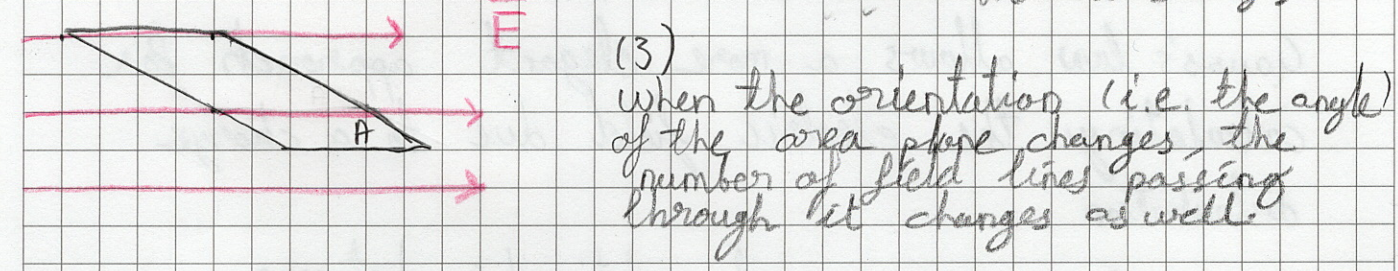 E
A
(3)
when the orientation (i.e. the angle)
of the area plane changes, the
number of field lines passing
through it changes as well.